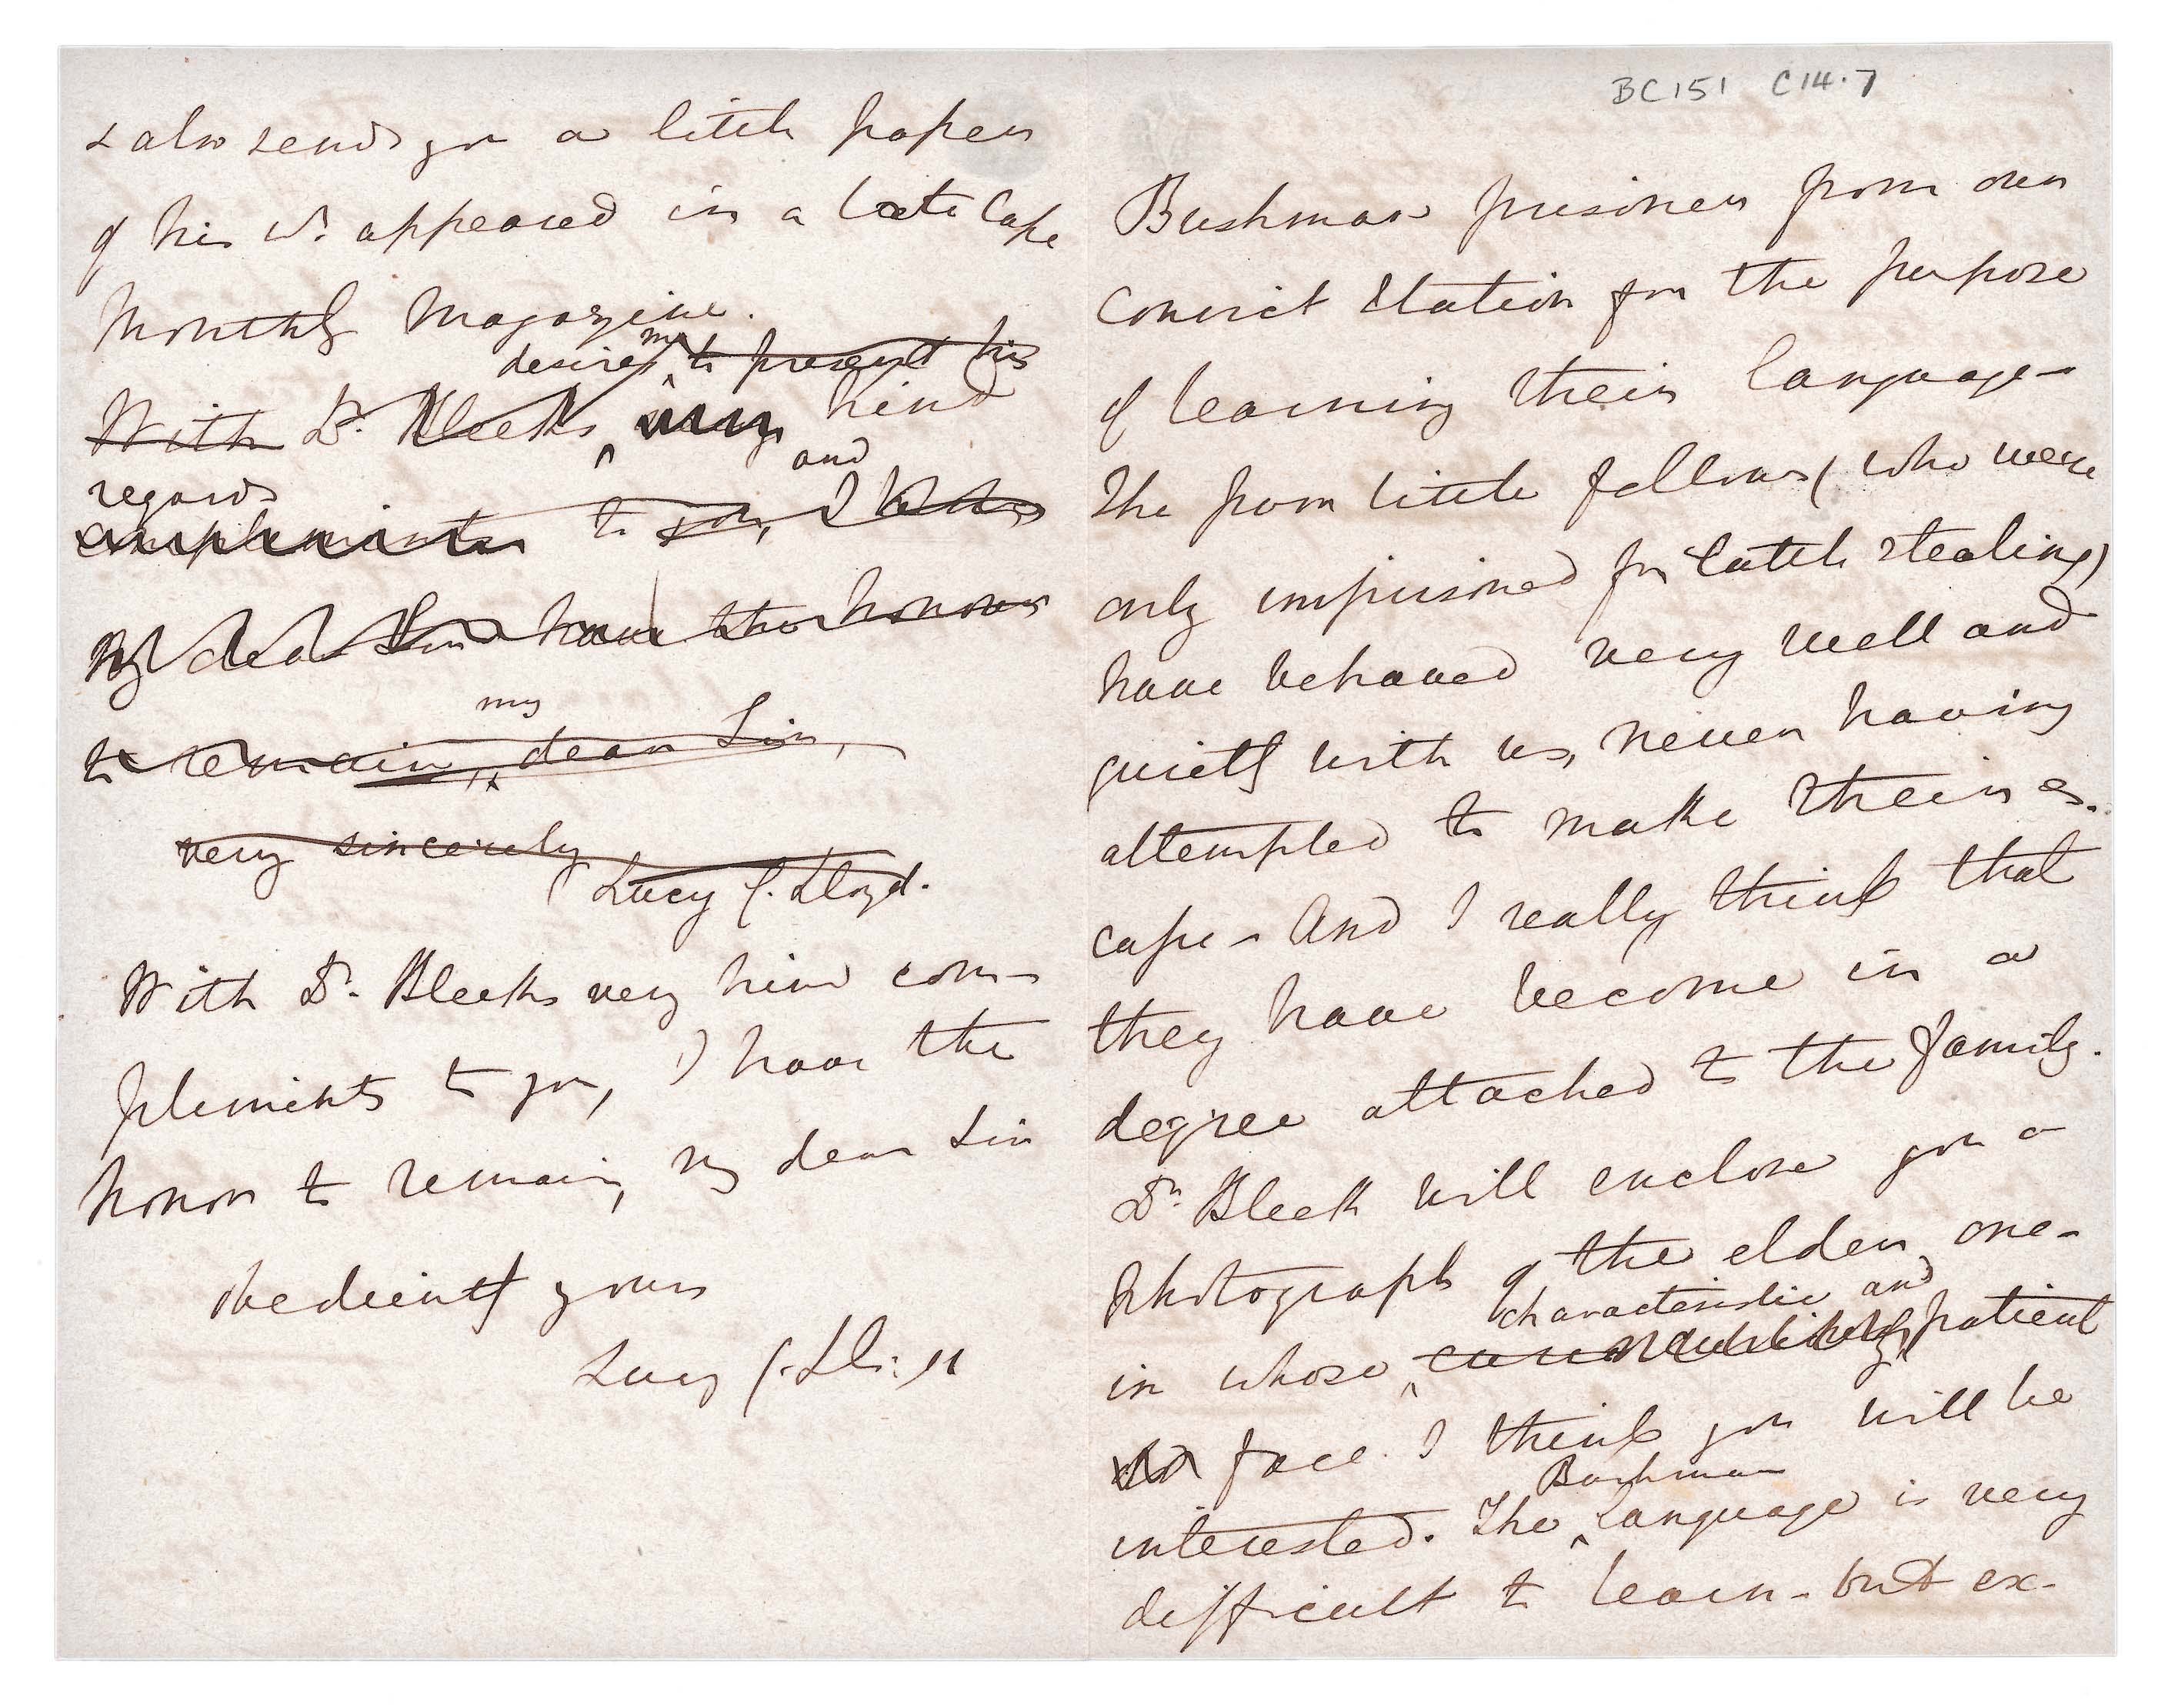 & also sends you a little paper
of his wh. appeared in a late Cape
Monthly Magazine.
desires me to present his
With Dr. Bleek's very kind
and
regards
compliments to you, I
My dear Sir have the honour
my
to remain, dear Sir,
very sincerely
Lucy C. Lloyd.
With Dr. Bleek's very kind com-
pliments to you, I have the
honor to remain, my dear Sir
obediently yours
Lucy C. Lloyd
BC151 C14.7
Bushman prisoners from our
Convict Station for the purpose
of learning their language-
The poor little fellows (who were
only imprisoned for Cattle stealing)
have behaved very well and
quietly with us, never having
attempted to make their es-
cape - And I really think that
they have become in a
degree attached to the family.
Dr. Bleek will enclose you a
photograph of the elder one-
characteristic and
in whose patient
face I think you will be
Bushman
interested. The Language is very
difficult to learn - but ex-